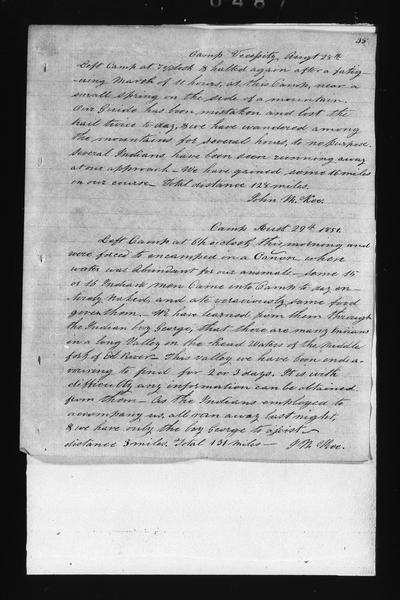 0487
35
Camp Necessity, Augt 28th
Left Camp at 7 oClock & halted again after a fatig-
uing March of 11 hours, at this Camp, near a
small spring on the side of a mountain.
Our Guide has been mistaken and lost the
trail twice to day, & we have wandered among
the mountains for several hours, to no purpose.
Several Indians have been seen running away
at our approach – We have gained some 16 miles
on our course – Total distance 128 miles.
John McKee.
Camp August 29th 1851.
Left Camp at 6½ o'clock this morning and
were forced to encamp in a Cañon, where
water was abundant for our animals – some 15
or 16 Indian men Came into Camp to day en-
tirely Naked, and ate voraciously some food
given them. We have learned from them through
the Indian boy George, that there are many Indians
in a long Valley on the head Waters of the Middle
fork of Eel River – This valley we have been ende-
avouring to find for 2 or 3 days. It is with
difficulty any information can be obtained
from them – As the Indians employed to
accompany us, all ran away last night,
& we have only the boy George to assist –
distance 3 miles, Total 131 Miles – J McKee.